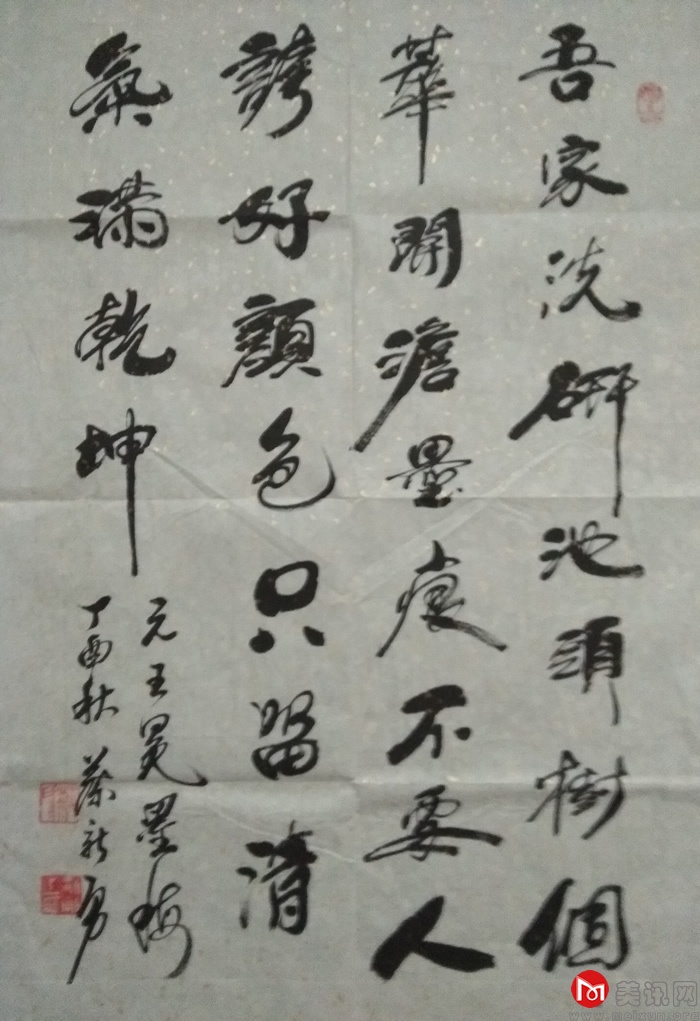 吾家洗研池頭樹個
華開澹墨痕不要人
誇好顏色只留清
氣滿乾坤
元王冕墨梅
丁酉秋 新勇
美讯网
www.meixun.org